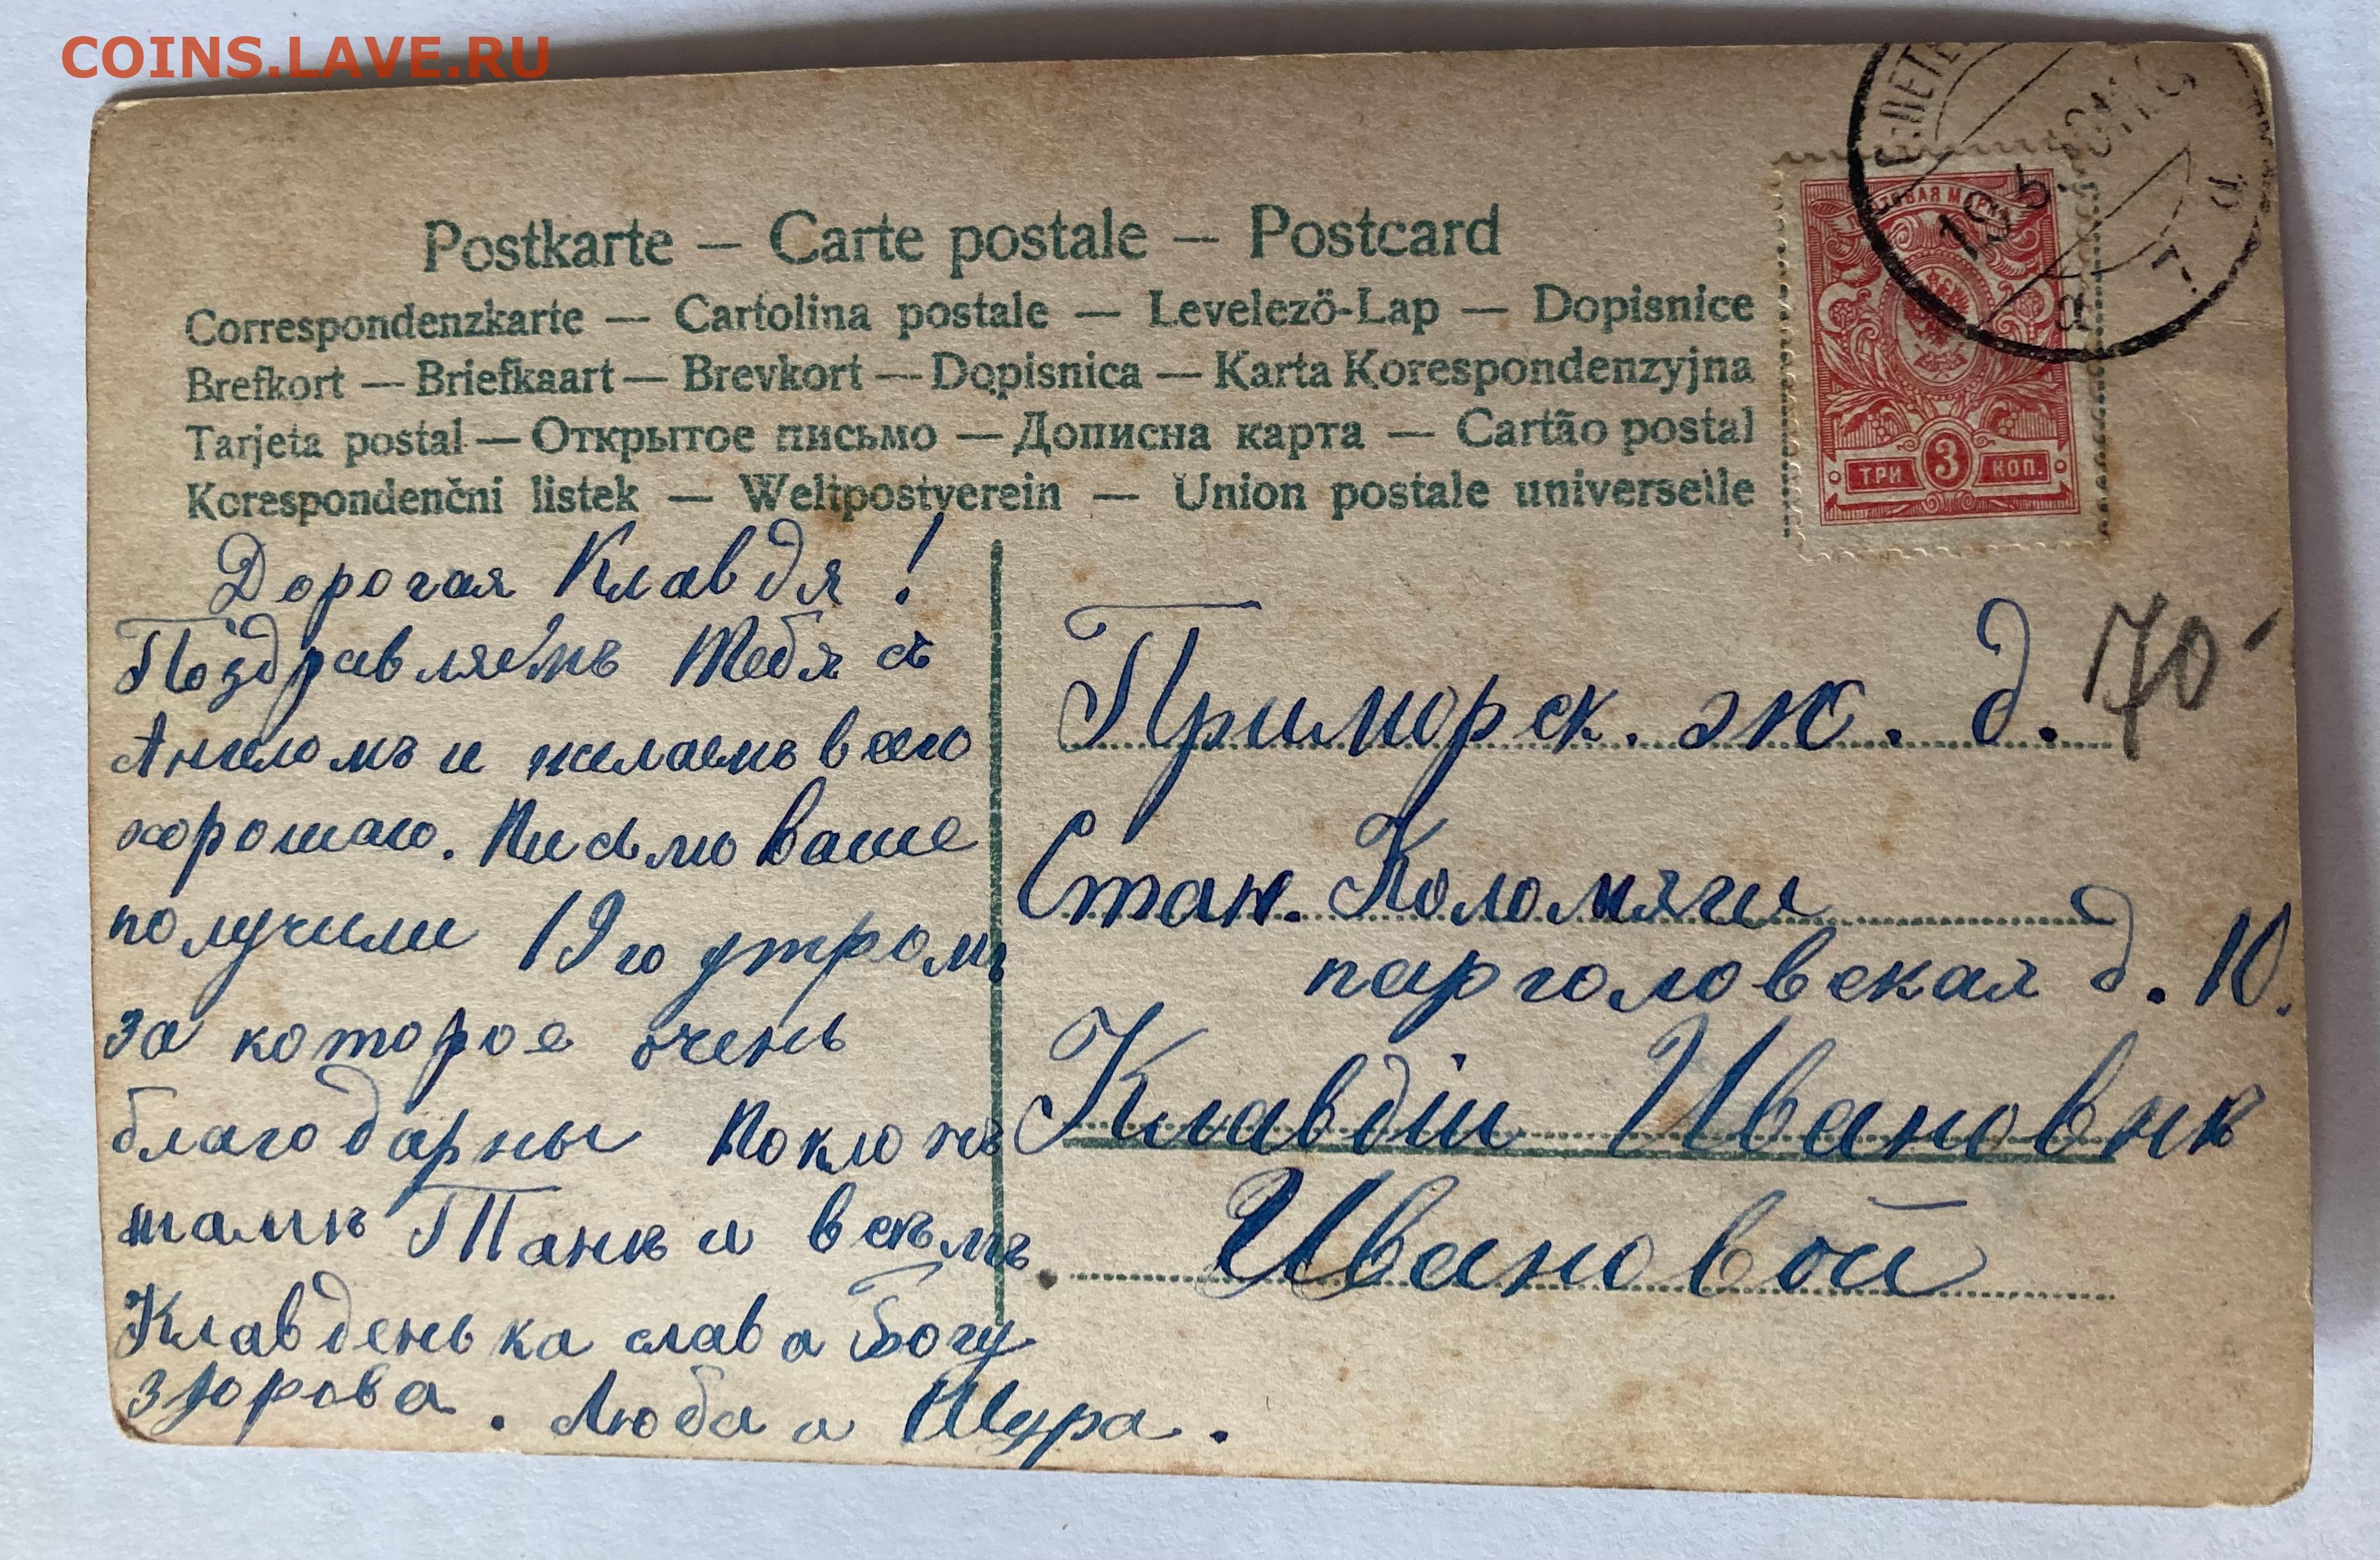 COINS.LAVE.RU
Postkarte — Carte postale — Postcard
Correspondenzkarte — Cartolina postale — Levelezö-Lap — Dopisnice
Brefkort — Briefkaart — Brevkort — Dopisnica — Karta Korespondenzyjna
Tarjeta postal — Открытое письмо — Дописна карта — Cartão postal
Korespondenčni listek — Weltpostverein — Union postale universelle
ПОЧТОВАЯ МАРКА
ТРИ 3 КОП.
Дорогая Клавдя!
Поздравляемъ Тебя съ
Ангеломъ и желаемъ всего
хорошаго. Письмо ваше
получили 19го утромъ
за которое очень
благодарны Поклонъ
мамѣ Танѣ и всѣмъ
Клавденька слава Богу
здорова. Люба и Шура.
70
Приморск. ж. д.
Стан. Коломяги
парголовская д. 10.
Клавдіи Ивановнѣ
Ивановой